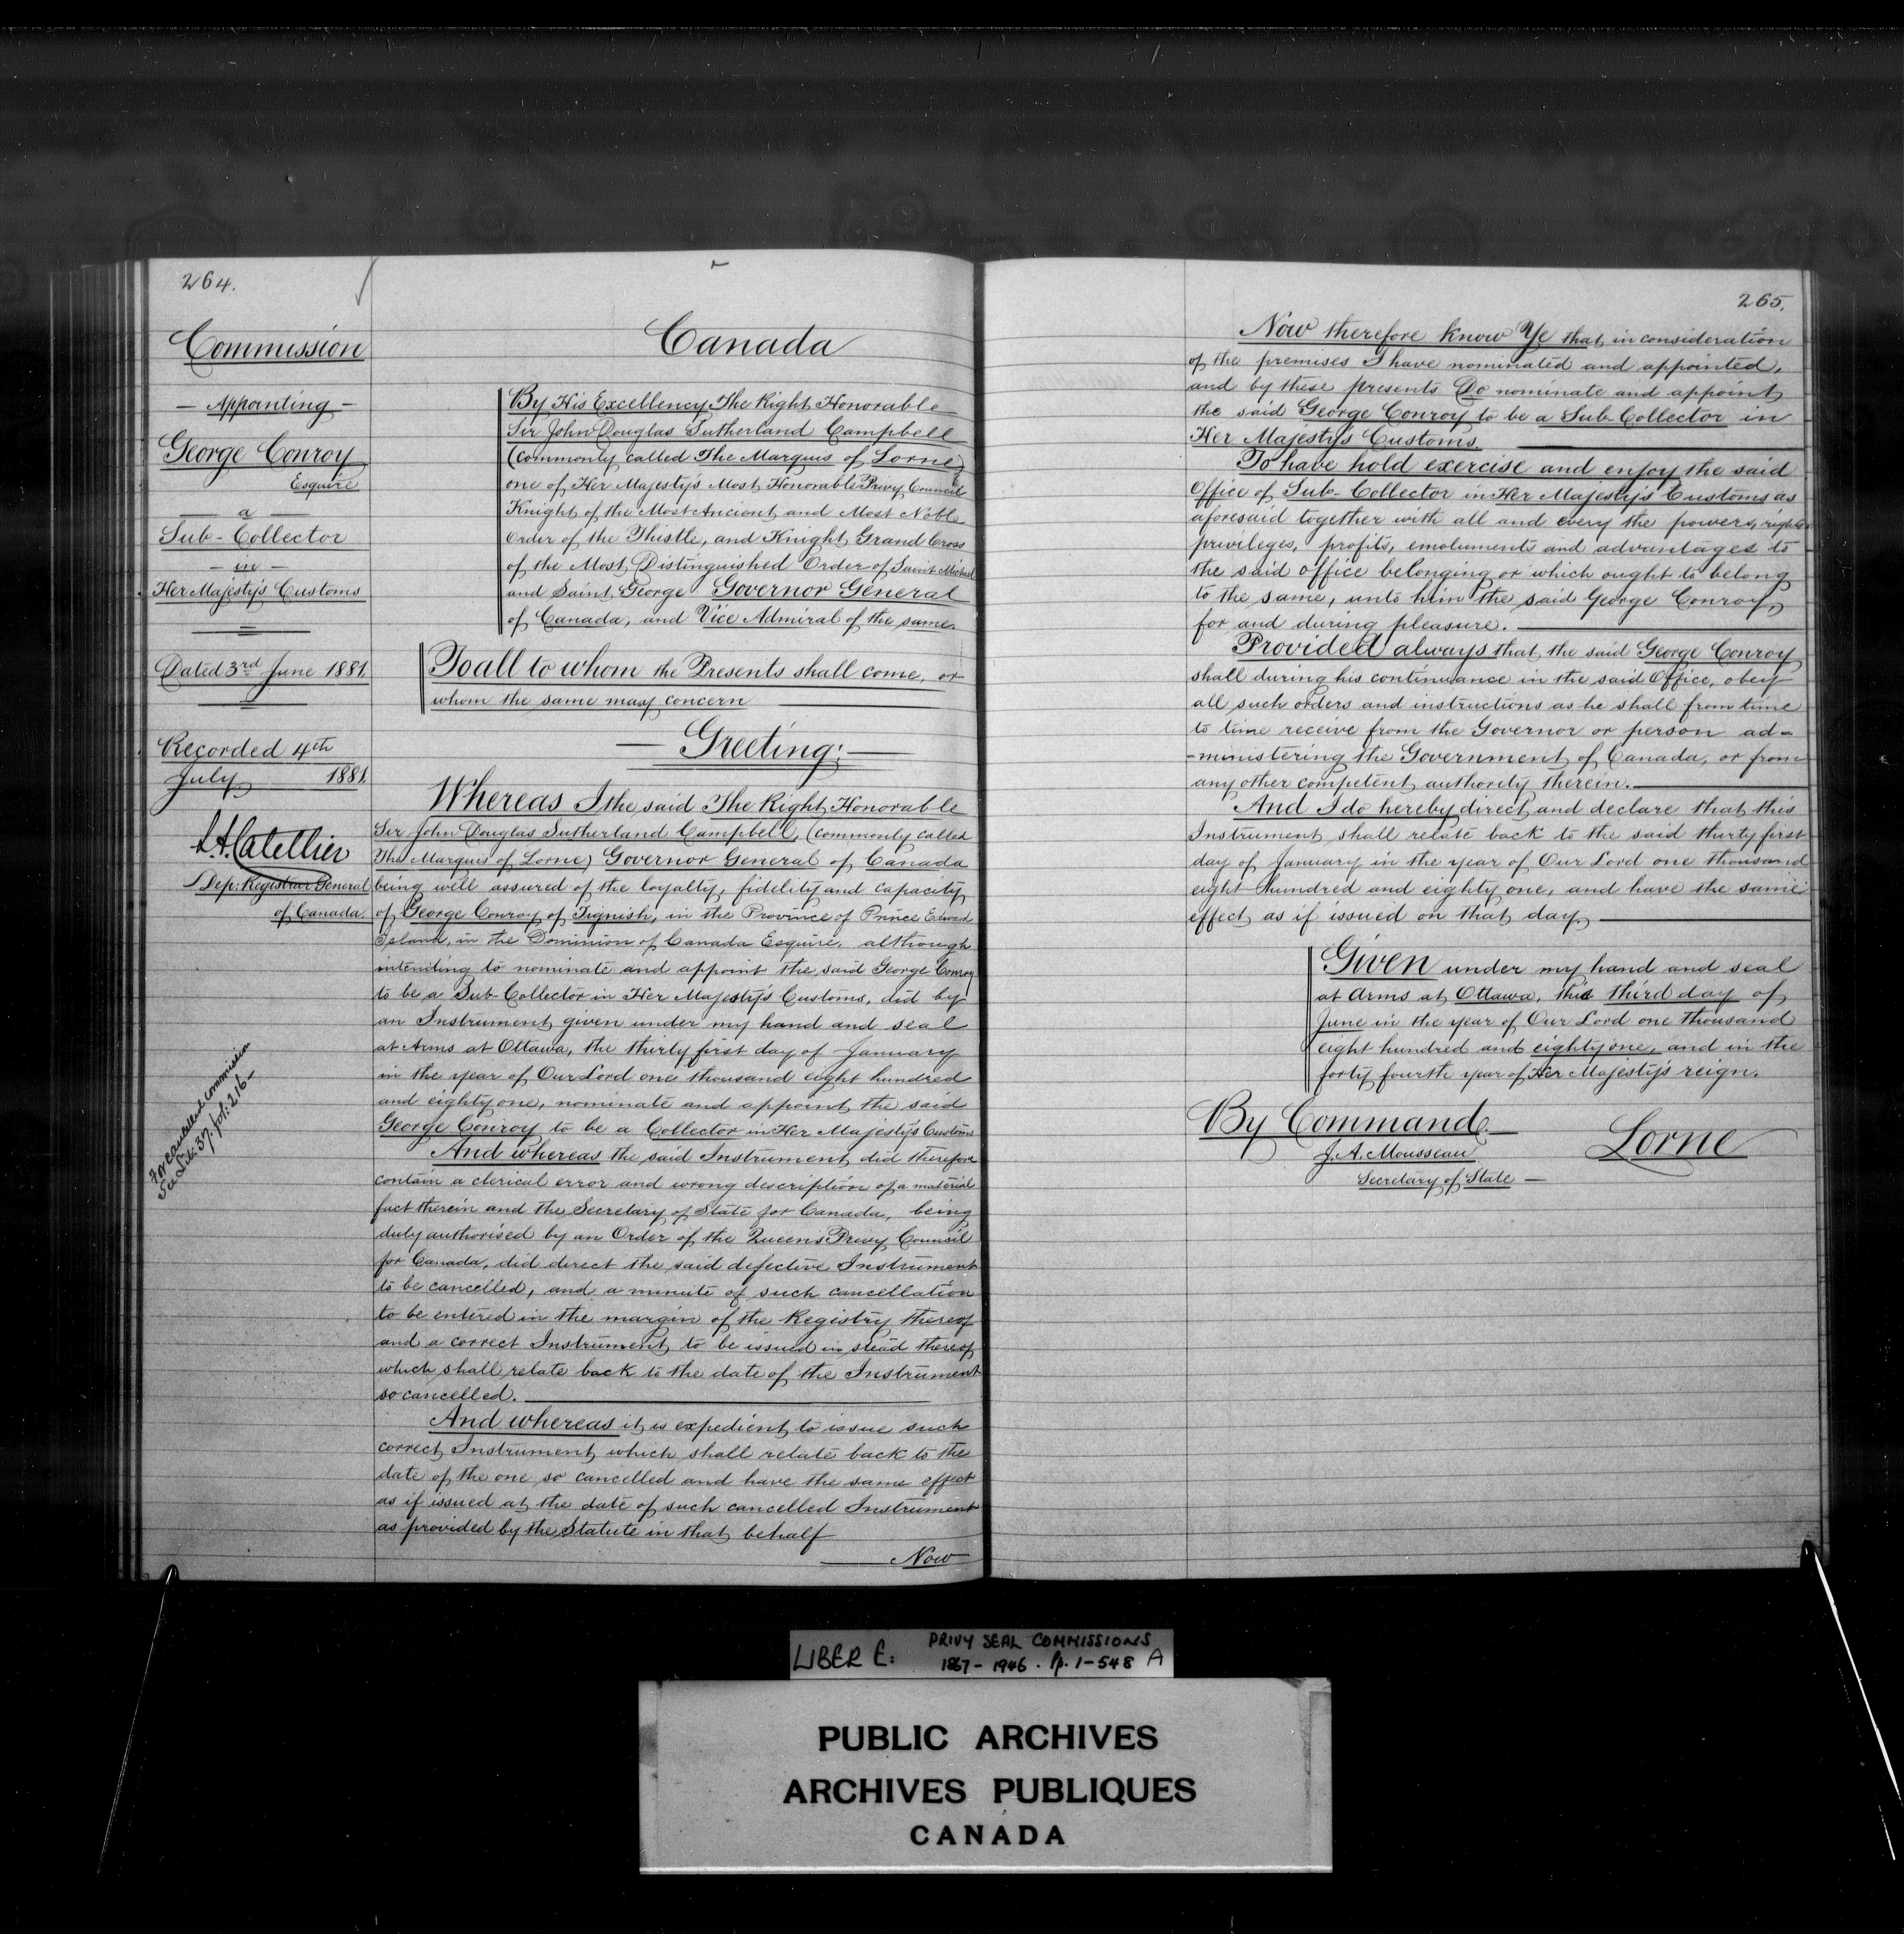 264.
Commission
- Appointing -
George Conroy
Esquire
a
Sub-Collector
- in -
Her Majesty's Customs
Dated 3rd June 1881.
Recorded 4th
July 1881.
L.A. Catellier
Dep: Registrar General
of Canada.
For cancelled Commission
See Lib: 37. fol: 216-
Canada
By His Excellency The Right Honorable
Sir John Douglas Sutherland Campbell
(commonly called The Marquis of Lorne)
one of Her Majesty's Most Honorable Privy Council
Knight of the Most Ancient and Most Noble
Order of the Thistle, and Knight Grand Cross
of the Most Distinguished Order of Saint Michael
and Saint George Governor General
of Canada, and Vice Admiral of the same.
To all to whom the Presents shall come, or
whom the same may concern
- Greeting: -
Whereas I the said The Right Honorable
Sir John Douglas Sutherland Campbell, (commonly called
The Marquis of Lorne) Governor General of Canada
being well assured of the loyalty, fidelity and capacity
of George Conroy of Tignish, in the Province of Prince Edward
Island, in the Dominion of Canada Esquire, although
intending to nominate and appoint the said George Conroy
to be a Sub-Collector in Her Majesty's Customs, did by
an Instrument given under my hand and seal
at Arms at Ottawa, the thirty first day of January
in the year of Our Lord one thousand eight hundred
and eighty one, nominate and appoint the said
George Conroy to be a Collector in Her Majesty's Customs
And whereas the said Instrument did therefore
contain a clerical error and wrong description of a material
fact therein and the Secretary of State for Canada, being
duly authorised by an Order of the Queens Privy Council
for Canada, did direct the said defective Instrument
to be cancelled, and a minute of such cancellation
to be entered in the margin of the Registry thereof
and a correct Instrument to be issued in stead thereof
which shall relate back to the date of the Instrument
so cancelled.
And whereas it is expedient to issue such
correct Instrument which shall relate back to the
date of the one so cancelled and have the same effect
as if issued at the date of such cancelled Instrument
as provided by the Statute in that behalf
Now
265.
Now therefore know Ye that in consideration
of the premises I have nominated and appointed,
and by these presents Do nominate and appoint
the said George Conroy to be a Sub-Collector in
Her Majesty's Customs
To have hold exercise and enjoy the said
Office of Sub-Collector in Her Majesty's Customs as
aforesaid together with all and every the powers, rights
privileges, profits, emoluments and advantages to
the said office belonging or which ought to belong
to the same, unto him the said George Conroy,
for and during pleasure.
Provided always that the said George Conroy
shall during his continuance in the said Office, obey
all such orders and instructions as he shall from time
to time receive from the Governor or person ad-
-ministering the Government of Canada, or from
any other competent authority therein.
And I do hereby direct and declare that this
Instrument shall relate back to the said thirty first
day of January in the year of Our Lord one thousand
eight hundred and eighty one, and have the same
effect as if issued on that day.
Given under my hand and seal
at Arms at Ottawa, this third day of
June in the year of Our Lord one thousand
eight hundred and eighty one, and in the
forty fourth year of Her Majesty's reign.
By Command
J.A. Mousseau
Secretary of State -
Lorne
LIBER E: PRIVY SEAL COMMISSIONS
1867 - 1946. Pp. 1-548 A
PUBLIC ARCHIVES
ARCHIVES PUBLIQUES
CANADA